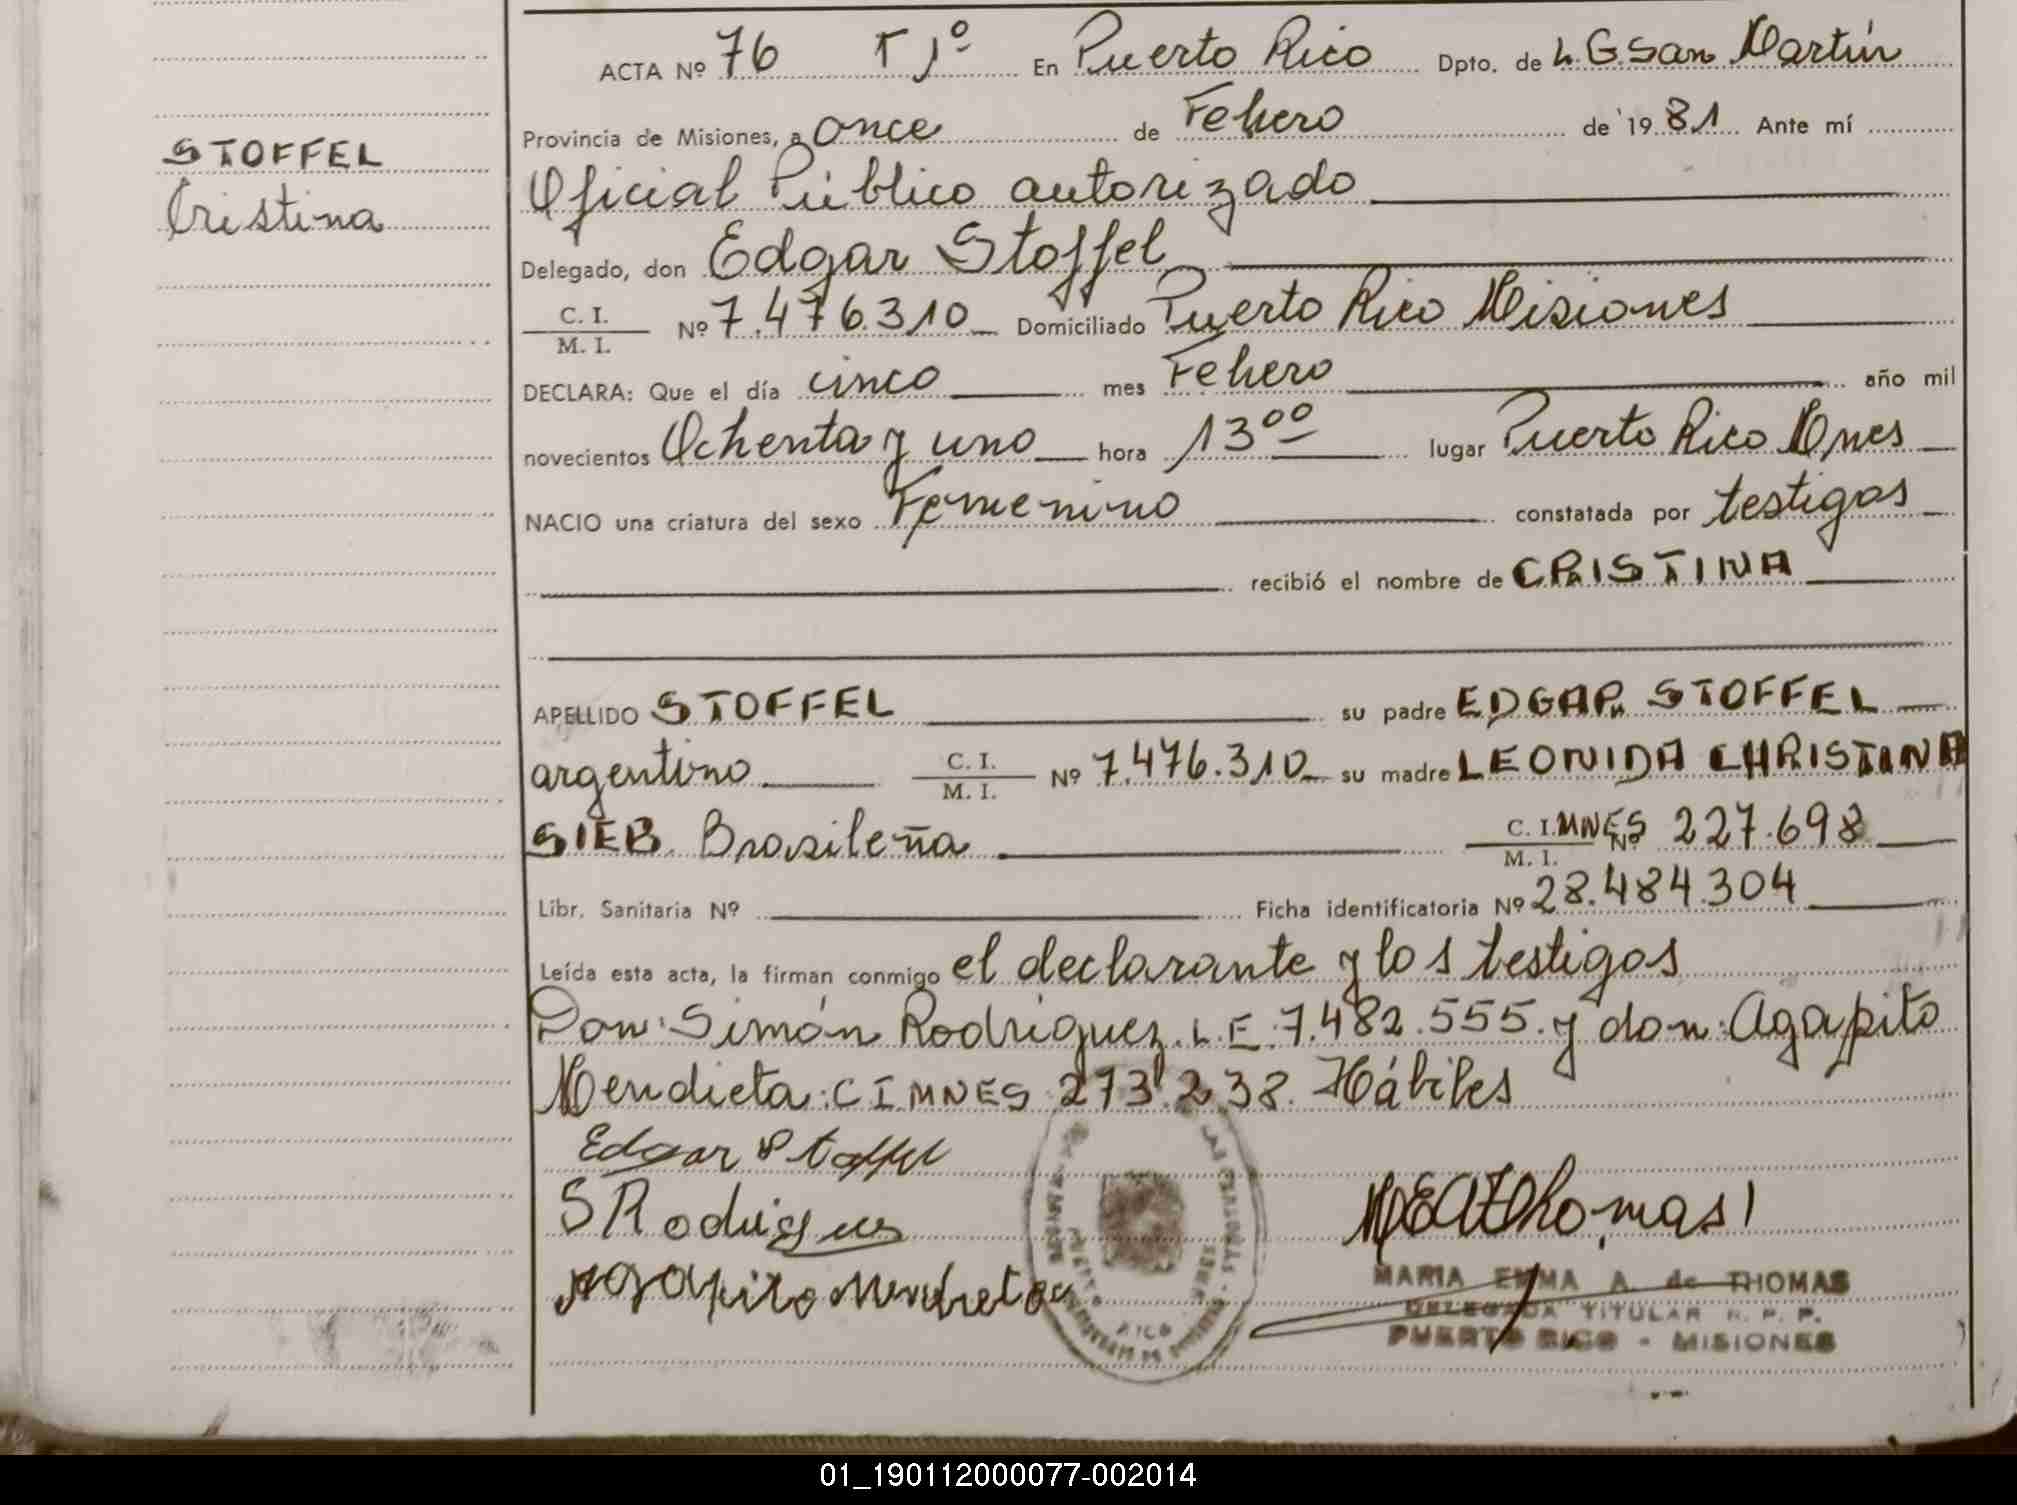 ACTA Nº 76 T 1º En Puerto Rico Dpto. de L.G.San Martín
Provincia de Misiones, a once de Febrero de 1981 Ante mí
STOFFEL
Cristina
Oficial Público autorizado
Delegado, don Edgar Stoffel
C. I.
M. I. Nº 7.476.310 Domiciliado Puerto Rico Misiones
DECLARA: Que el día cinco mes Febrero año mil
novecientos Ochenta y uno hora 13⁰⁰ lugar Puerto Rico Mnes
NACIO una criatura del sexo Femenino constatada por testigos
recibió el nombre de CRISTINA
APELLIDO STOFFEL su padre EDGAR STOFFEL
argentino C. I. M. I. Nº 7.476.310 su madre LEONIDA CHRISTINA
SIEB Brasileña C. I. MNES M. I. Nº 227.698
Libr. Sanitaria Nº Ficha identificatoria Nº 28.484.304
Leída esta acta, la firman conmigo el declarante y los testigos
Don: Simón Rodriguez. L.E. 7.482.555. y don: Agapito
Mendieta: CI MNES 273.238. Hábiles
Edgar Stoffel
S Rodrigues
Agapito Mendieta
MEAThomas
MARIA EMMA A. de THOMAS
DELEGADA TITULAR R. P. P.
PUERTO RICO - MISIONES
01_190112000077-002014